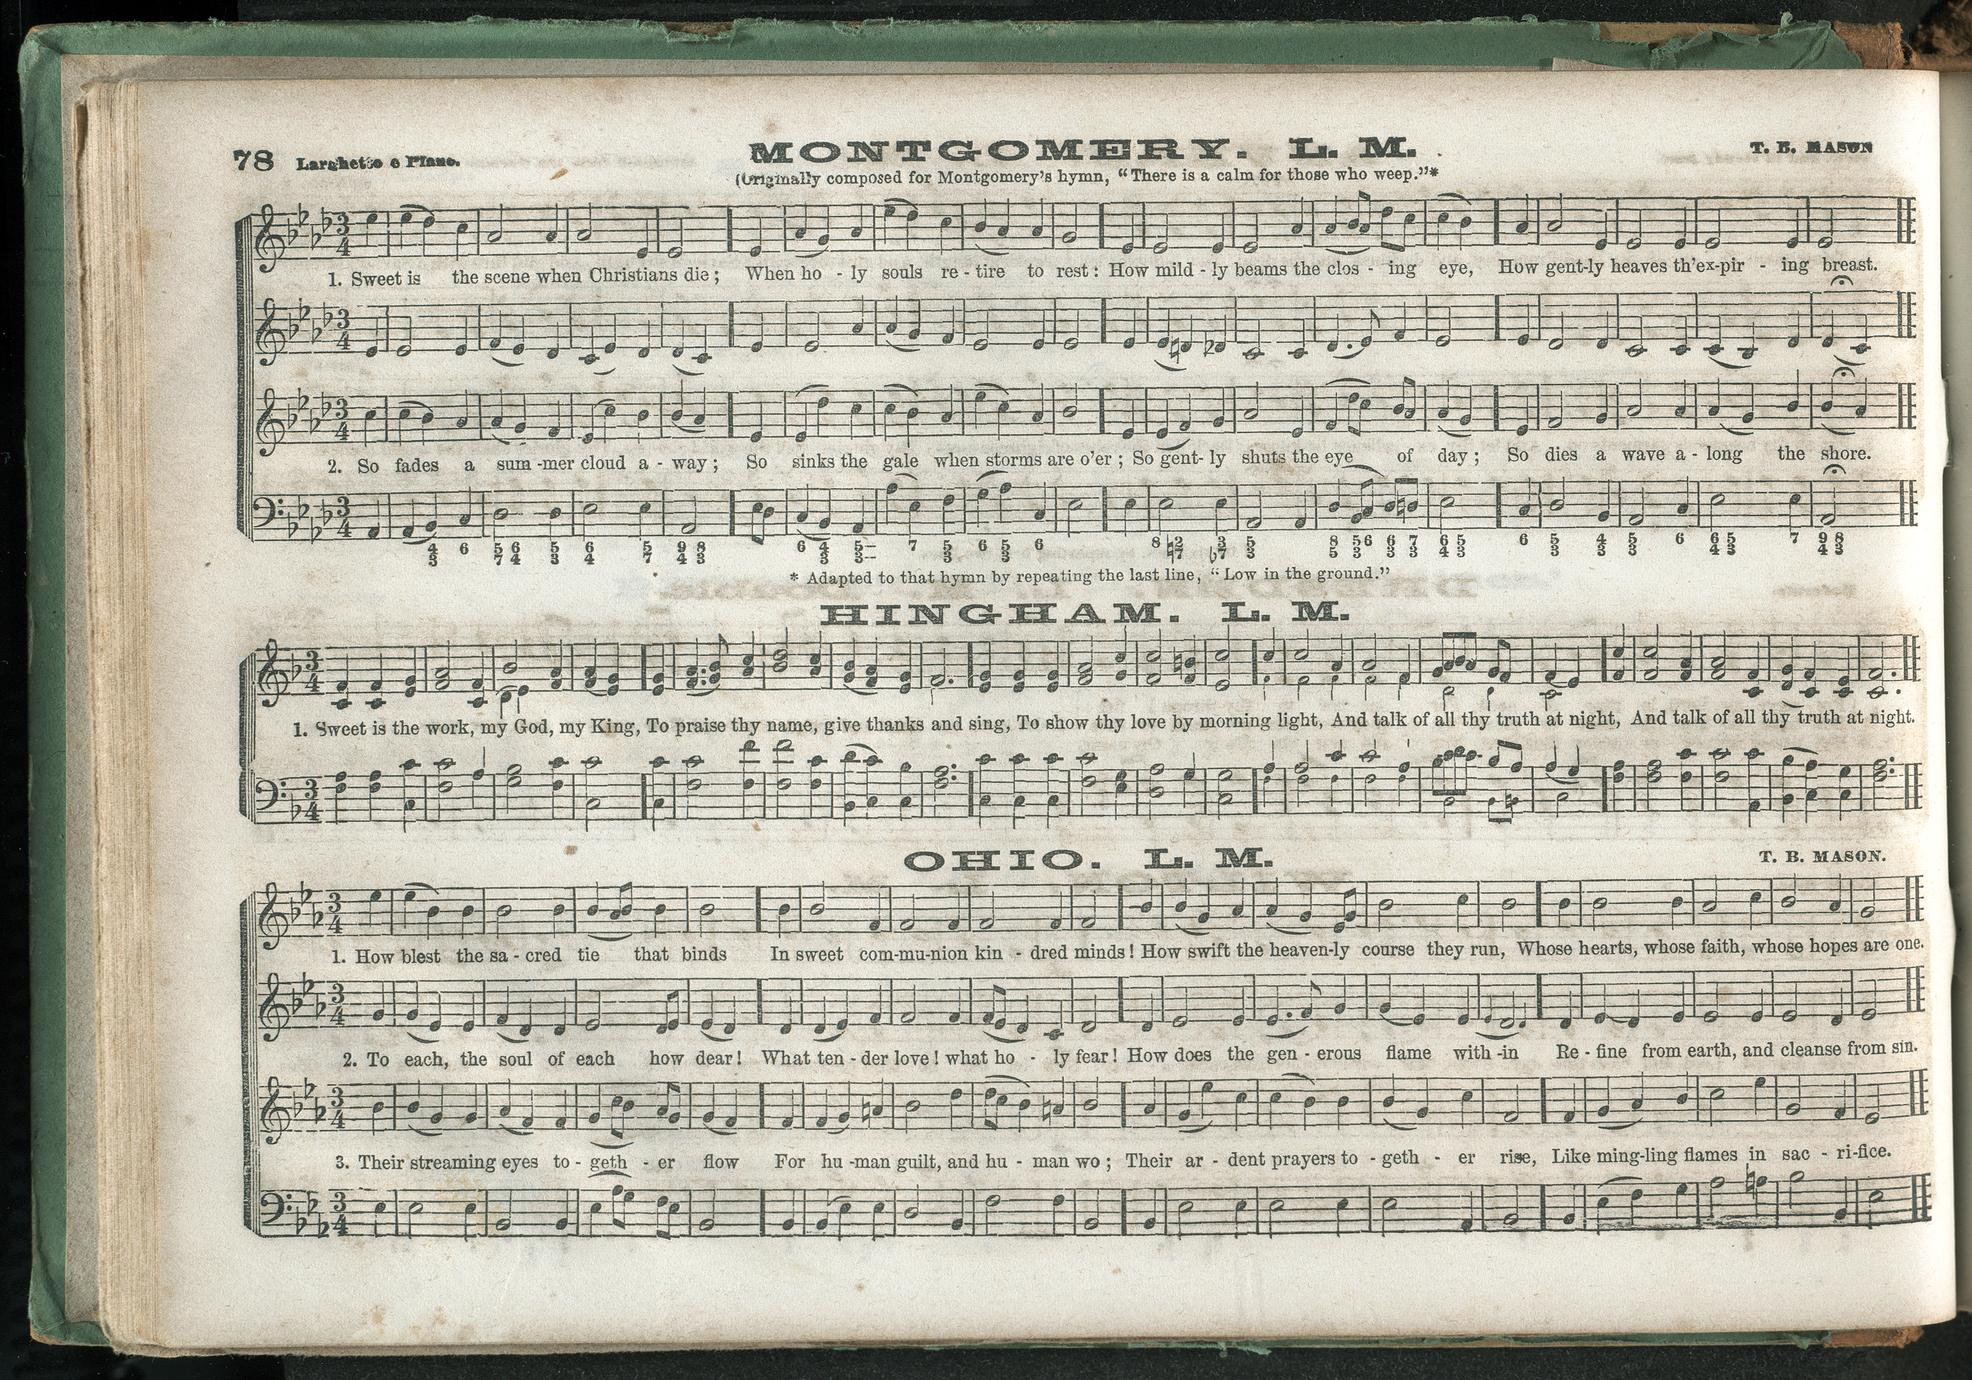 78 Larghetto e Piano. MONTGOMERY. L. M. T. B. MASON
(Originally composed for Montgomery's hymn, "There is a calm for those who weep."*
1. Sweet is the scene when Christians die; When ho - ly souls re - tire to rest: How mild - ly beams the clos - ing eye, How gent-ly heaves th'ex-pir - ing breast.
2. So fades a sum - mer cloud a - way; So sinks the gale when storms are o'er; So gent- ly shuts the eye of day; So dies a wave a - long the shore.
* Adapted to that hymn by repeating the last line, "Low in the ground."
HINGHAM. L. M.
1. Sweet is the work, my God, my King, To praise thy name, give thanks and sing, To show thy love by morning light, And talk of all thy truth at night, And talk of all thy truth at night.
OHIO. L. M. T. B. MASON.
1. How blest the sa - cred tie that binds In sweet com-mu-nion kin - dred minds! How swift the heaven-ly course they run, Whose hearts, whose faith, whose hopes are one.
2. To each, the soul of each how dear! What ten - der love! what ho - ly fear! How does the gen - erous flame with -in Re - fine from earth, and cleanse from sin.
3. Their streaming eyes to - geth - er flow For hu -man guilt, and hu - man wo; Their ar - dent prayers to - geth - er rise, Like ming-ling flames in sac - ri-fice.